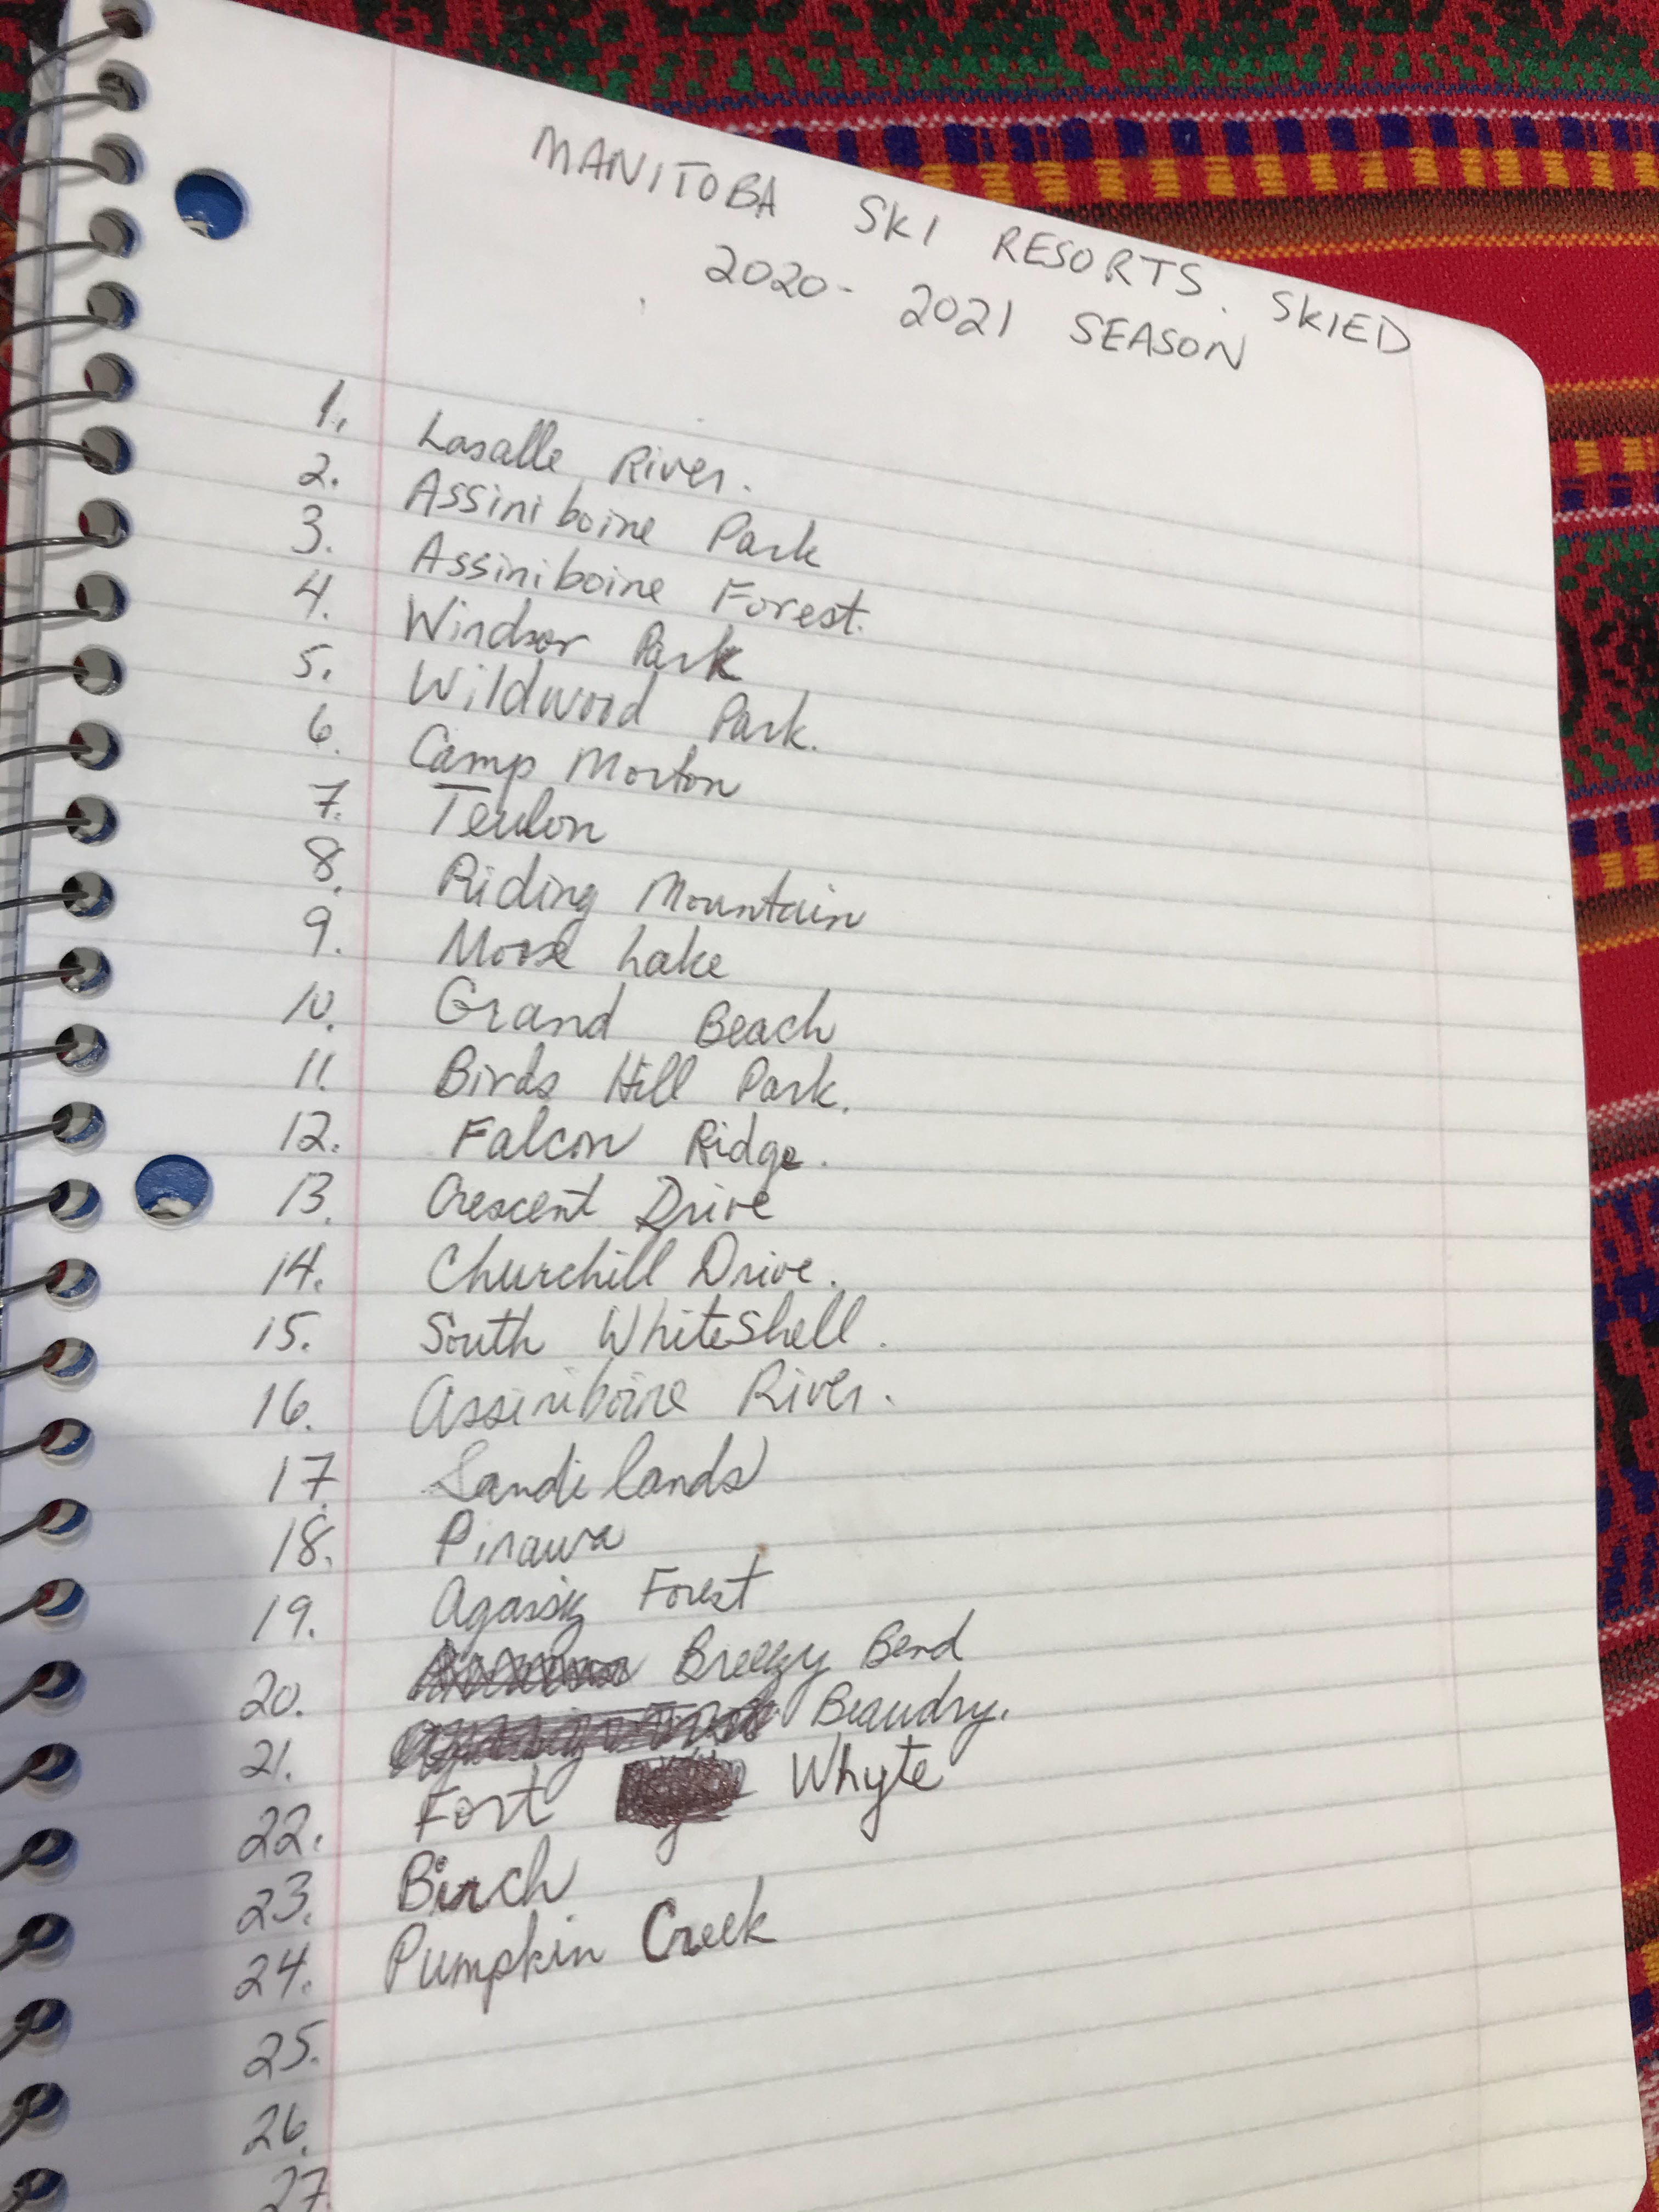 MANITOBA SKI RESORTS. SKIED
2020-2021 SEASON
1. Lasalle River.
2. Assiniboine Park
3. Assiniboine Forest.
4. Windsor Park
5. Wildwood Park.
6. Camp Morton
7. Teulon
8. Riding Mountain
9. Moose Lake
10. Grand Beach
11. Birds Hill Park.
12. Falcon Ridge.
13. Crescent Drive
14. Churchill Drive.
15. South Whiteshell.
16. Assiniboine River.
17. Sandilands
18. Pinawa
19. Agassiz Forest
20. Breezy Bend
21. Beaudry.
22. Fort Whyte
23. Birch
24. Pumpkin Creek
25.
26.
27.